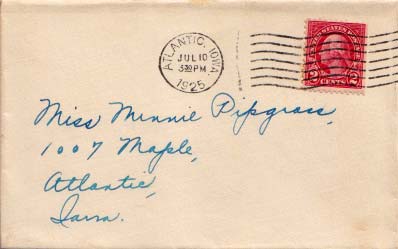 ATLANTIC, IOWA
JUL 10
3 30 PM
1925
UNITED STATES POSTAGE
2 CENTS 2
Miss Minnie Pipgrass,
1007 Maple,
Atlantic,
Iowa.